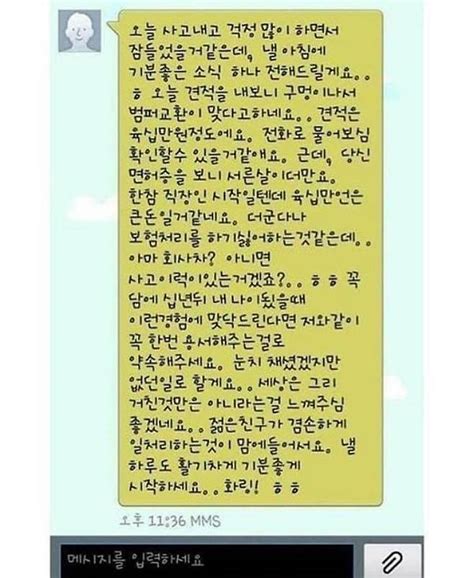 오늘 사고내고 걱정 많이 하면서
잠들었을거같은데, 낼 아침에
기분좋은 소식 하나 전해드릴게요..
ㅎ 오늘 견적을 내보니 구멍이나서
범퍼교환이 맞다고하네요.. 견적은
육십만원정도에요. 전화로 물어보심
확인할수 있을거같애요. 근데, 당신
면허증을 보니 서른살이더만요.
한참 직장인 시작일텐데 육십만언은
큰돈일거같네요. 더군다나
보험처리를 하기싫어하는것같은데..
아마 회사차? 아니면
사고이력이있는거겠죠?.. ㅎㅎ 꼭
담에 십년뒤 내 나이됬을때
이런경험에 맞닥드린다면 저와같이
꼭 한번 용서해주는걸로
약속해주세요. 눈치 채셨겠지만
없던일로 할게요.. 세상은 그리
거친것만은 아니라는걸 느껴주심
좋겠네요.. 젊은친구가 겸손하게
일처리하는것이 맘에들어서요. 낼
하루도 활기차게 기분좋게
시작하세요.. 화링!! ㅎㅎ
오후 11:36 MMS
메시지를 입력하세요